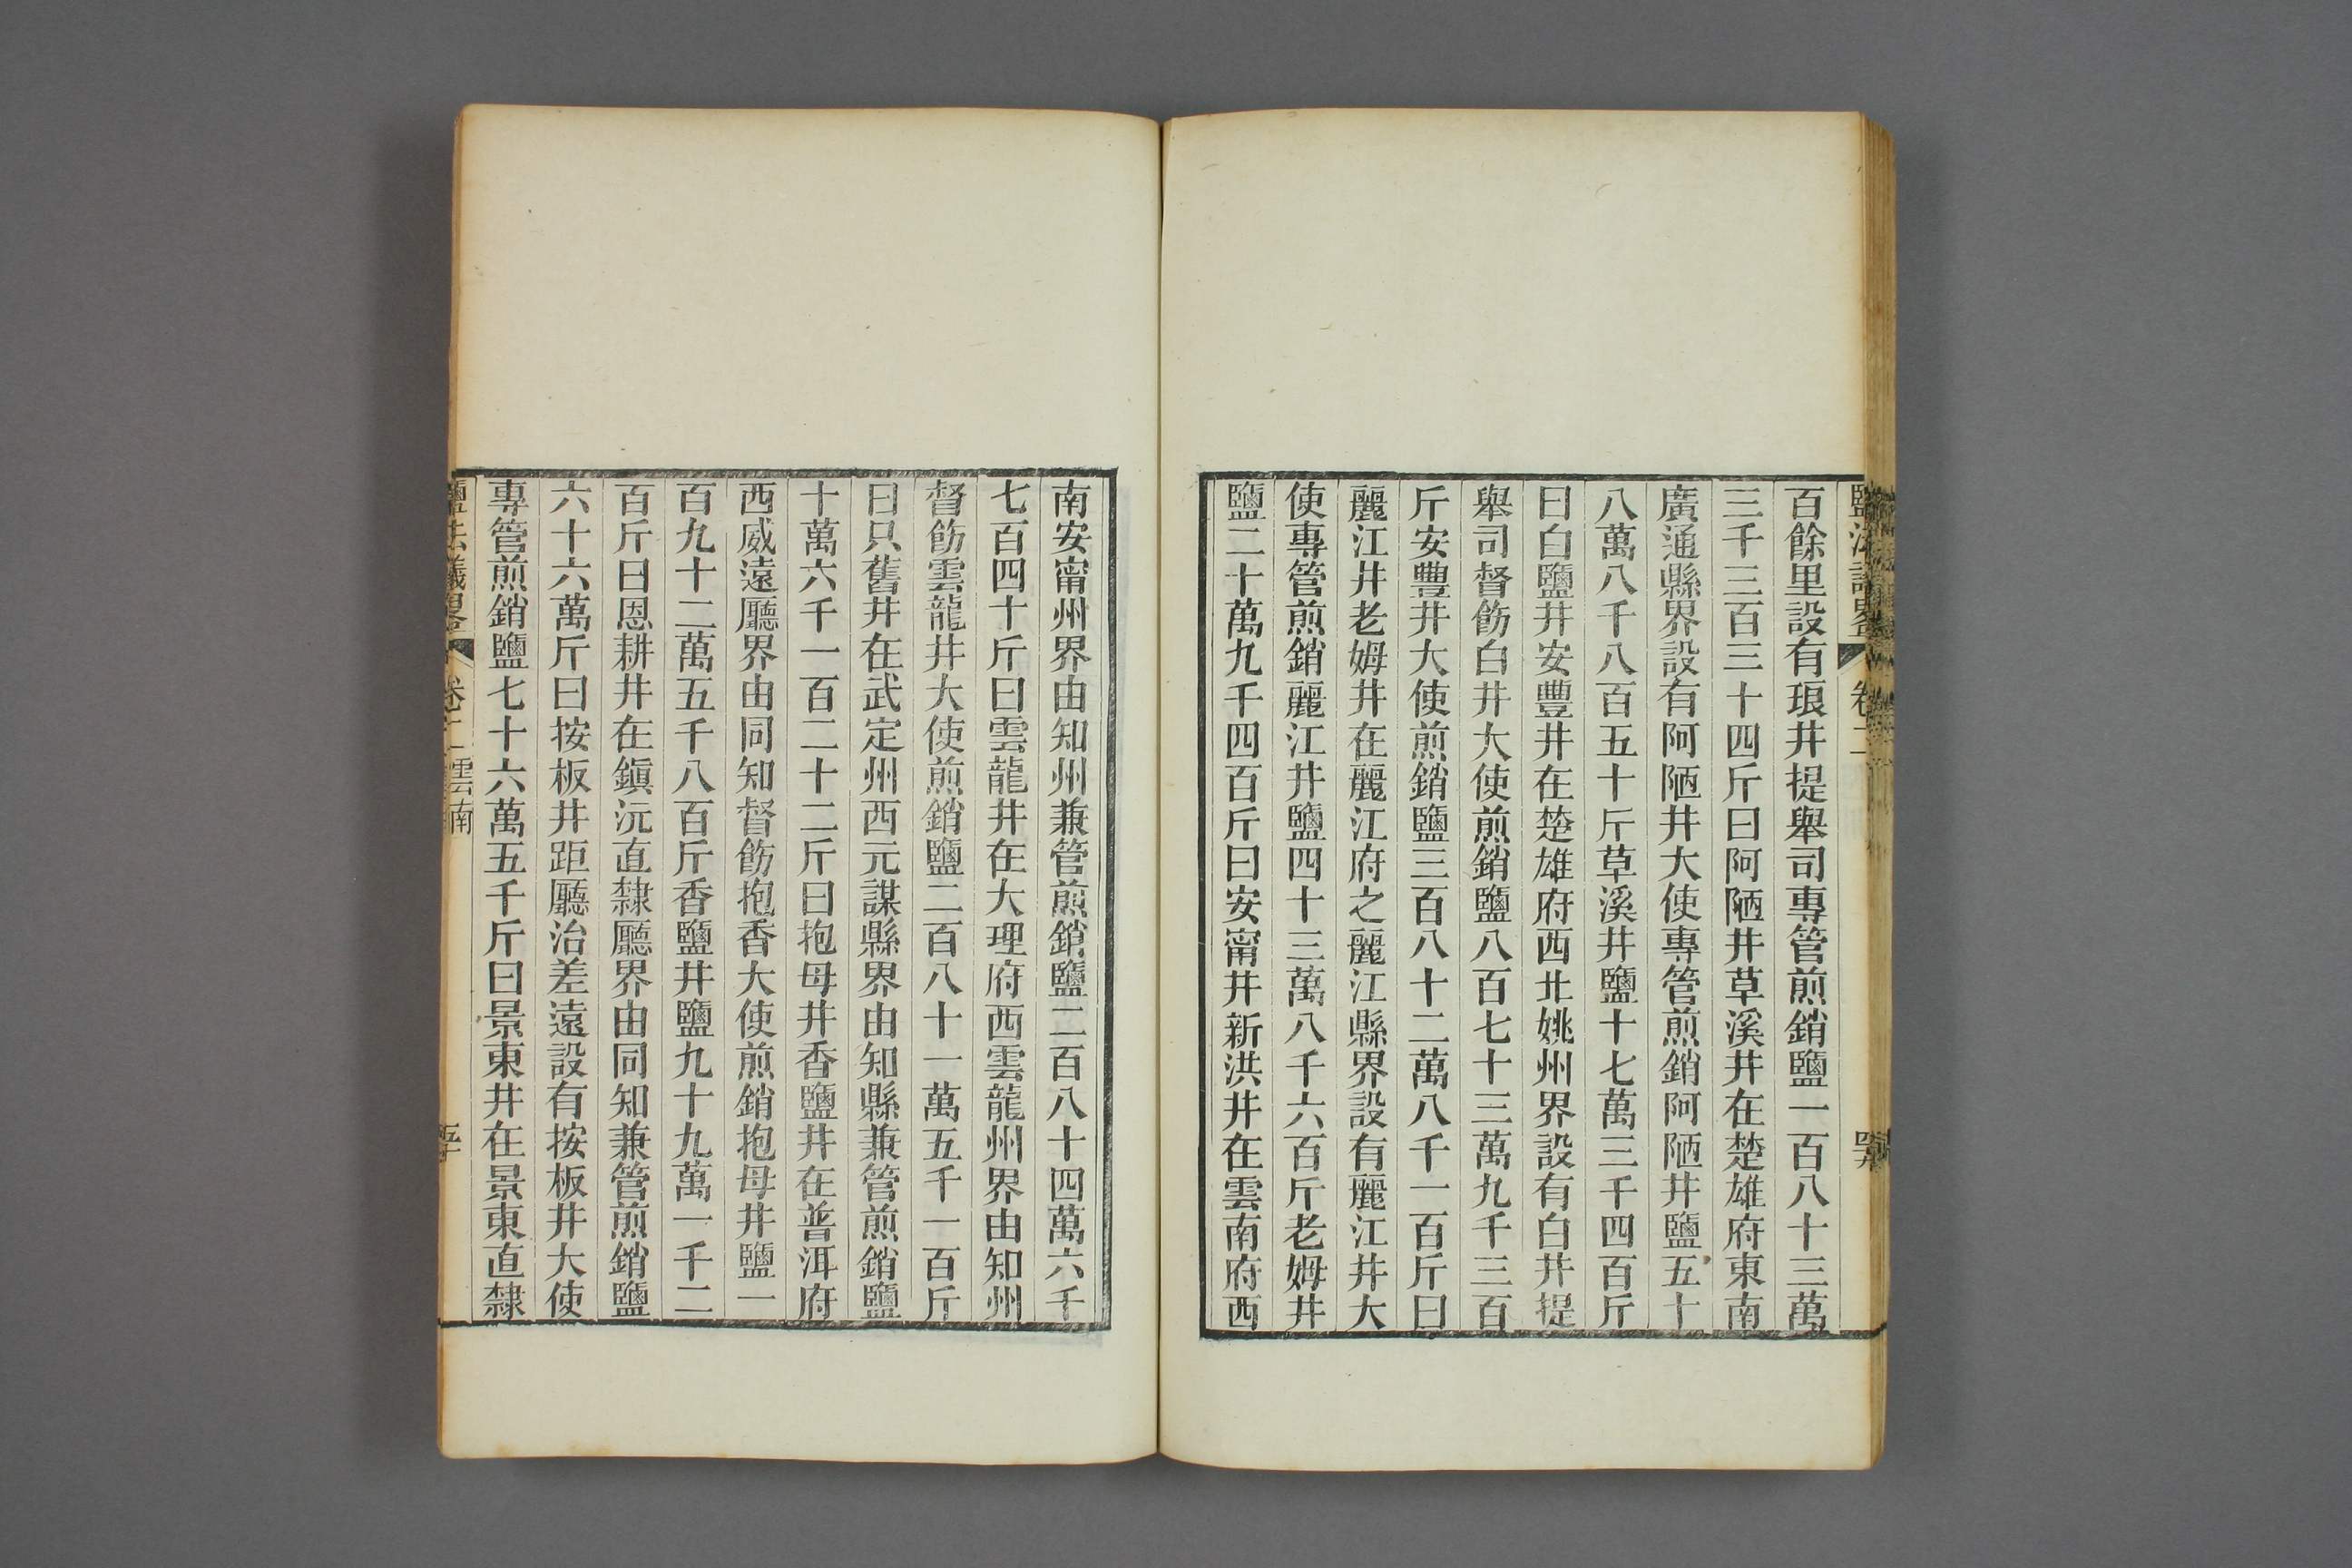 鹽法議略
卷二
百餘里設有琅井提舉司專管煎銷鹽一百八十三萬
三千三百三十四斤曰阿陋井草溪井在楚雄府東南
廣通縣界設有阿陋井大使專管煎銷阿陋井鹽五十
八萬八千八百五十斤草溪井鹽十七萬三千四百斤
曰白鹽井安豐井在楚雄府西北姚州界設有白井提
舉司督飭白井大使煎銷鹽八百七十三萬九千三百
斤安豐井大使煎銷鹽三百八十二萬八千一百斤曰
麗江井老姆井在麗江府之麗江縣界設有麗江井大
使專管煎銷麗江井鹽四十三萬八千六百斤老姆井
鹽二十萬九千四百斤曰安甯井新洪井在雲南府西
南安甯州界由知州兼管煎銷鹽二百八十四萬六千
七百四十斤曰雲龍井在大理府西雲龍州界由知州
督飭雲龍井大使煎銷鹽二百八十一萬五千一百斤
曰只舊井在武定州西元謀縣界由知縣兼管煎銷鹽
十萬六千一百二十二斤曰抱母井香鹽井在普洱府
西威遠廳界由同知督飭抱香大使煎銷抱母井鹽一
百九十二萬五千八百斤香鹽井鹽九十九萬一千二
百斤曰恩耕井在鎭沅直隸廳界由同知兼管煎銷鹽
六十六萬斤曰按板井距廳治差遠設有按板井大使
專管煎銷鹽七十六萬五千斤曰景東井在景東直隸
鹽法議略
卷二 雲南